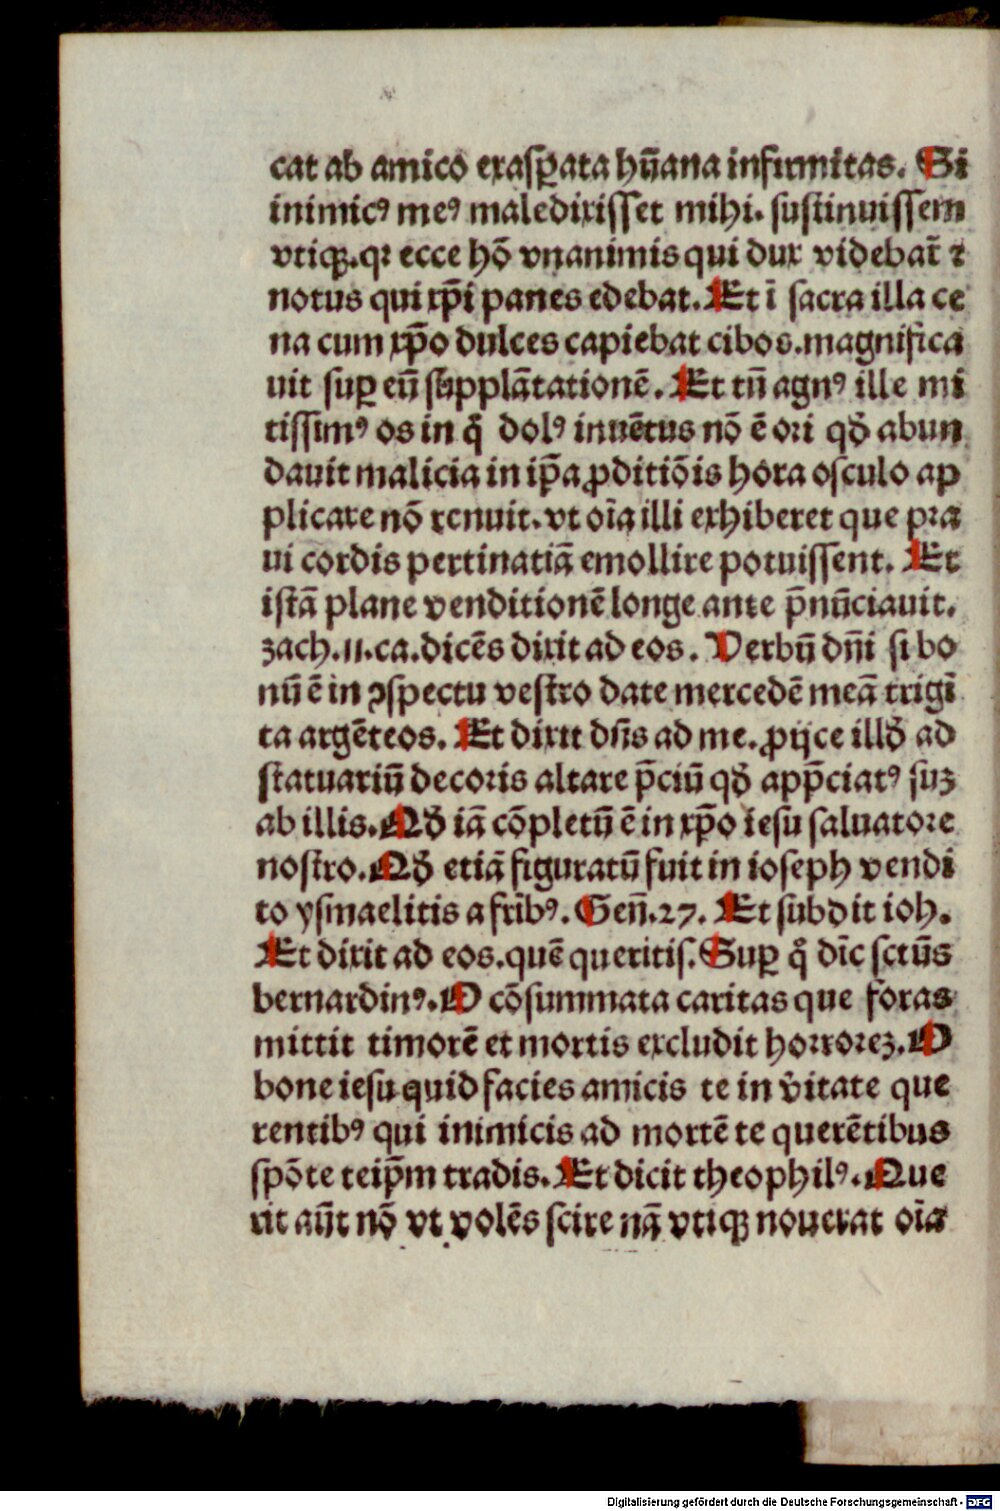 cat ab amico exasꝑata hūana infirmitas. Si
inimicꝰ meꝰ maledixisset mihi. sustinuissem
vtiqꝫ. qꝛ ecce hō vnanimis qui dux videbat̄ ⁊
notus qui xp̄i panes edebat. Et ī sacra illa ce
na cum xp̄o dulces capiebat cibos. magnifica
uit suꝑ eū supplātationē. Et tn̄ agnꝰ ille mi
tissimꝰ os in q̄ dolꝰ inuētus nō ē ori qd̄ abun
dauit malicia in ip̄a ꝓditiōis hora osculo ap
plicare nō renuit. vt oīa illi exhiberet que pra
ui cordis pertinatiā emollire potuissent. Et
istā plane venditionē longe ante p̄nūciauit.
zach. 11. ca. dicēs dixit ad eos. Verbū dn̄i si bo
nū ē in ꝯspectu vestro date mercedē meā trigī
ta argēteos. Et dixit dn̄s ad me. ꝓijce illd̄ ad
statuariū decoris altare p̄ciū qd̄ app̄ciatꝰ suꝫ
ab illis. Qd̄ iā cōpletū ē in xp̄o iesu saluatore
nostro. Qd̄ etiā figuratū fuit in ioseph vendi
to ysmaelitis a fr̄ibꝰ. Gen̄. 27. Et subdit ioh.
Et dixit ad eos. quē queritis. Suꝑ q̄ dīc sctūs
bernardinꝰ. O cōsummata caritas que foras
mittit timorē et mortis excludit horrorez. O
bone iesu quid facies amicis te in v̄itate que
rentibꝰ qui inimicis ad mortē te querētibus
spōte teip̄m tradis. Et dicit theophilꝰ. Que
rit aūt nō vt volēs scire nā vtiqꝫ nouerat oīa
Digitalisierung gefördert durch die Deutsche Forschungsgemeinschaft - DFG